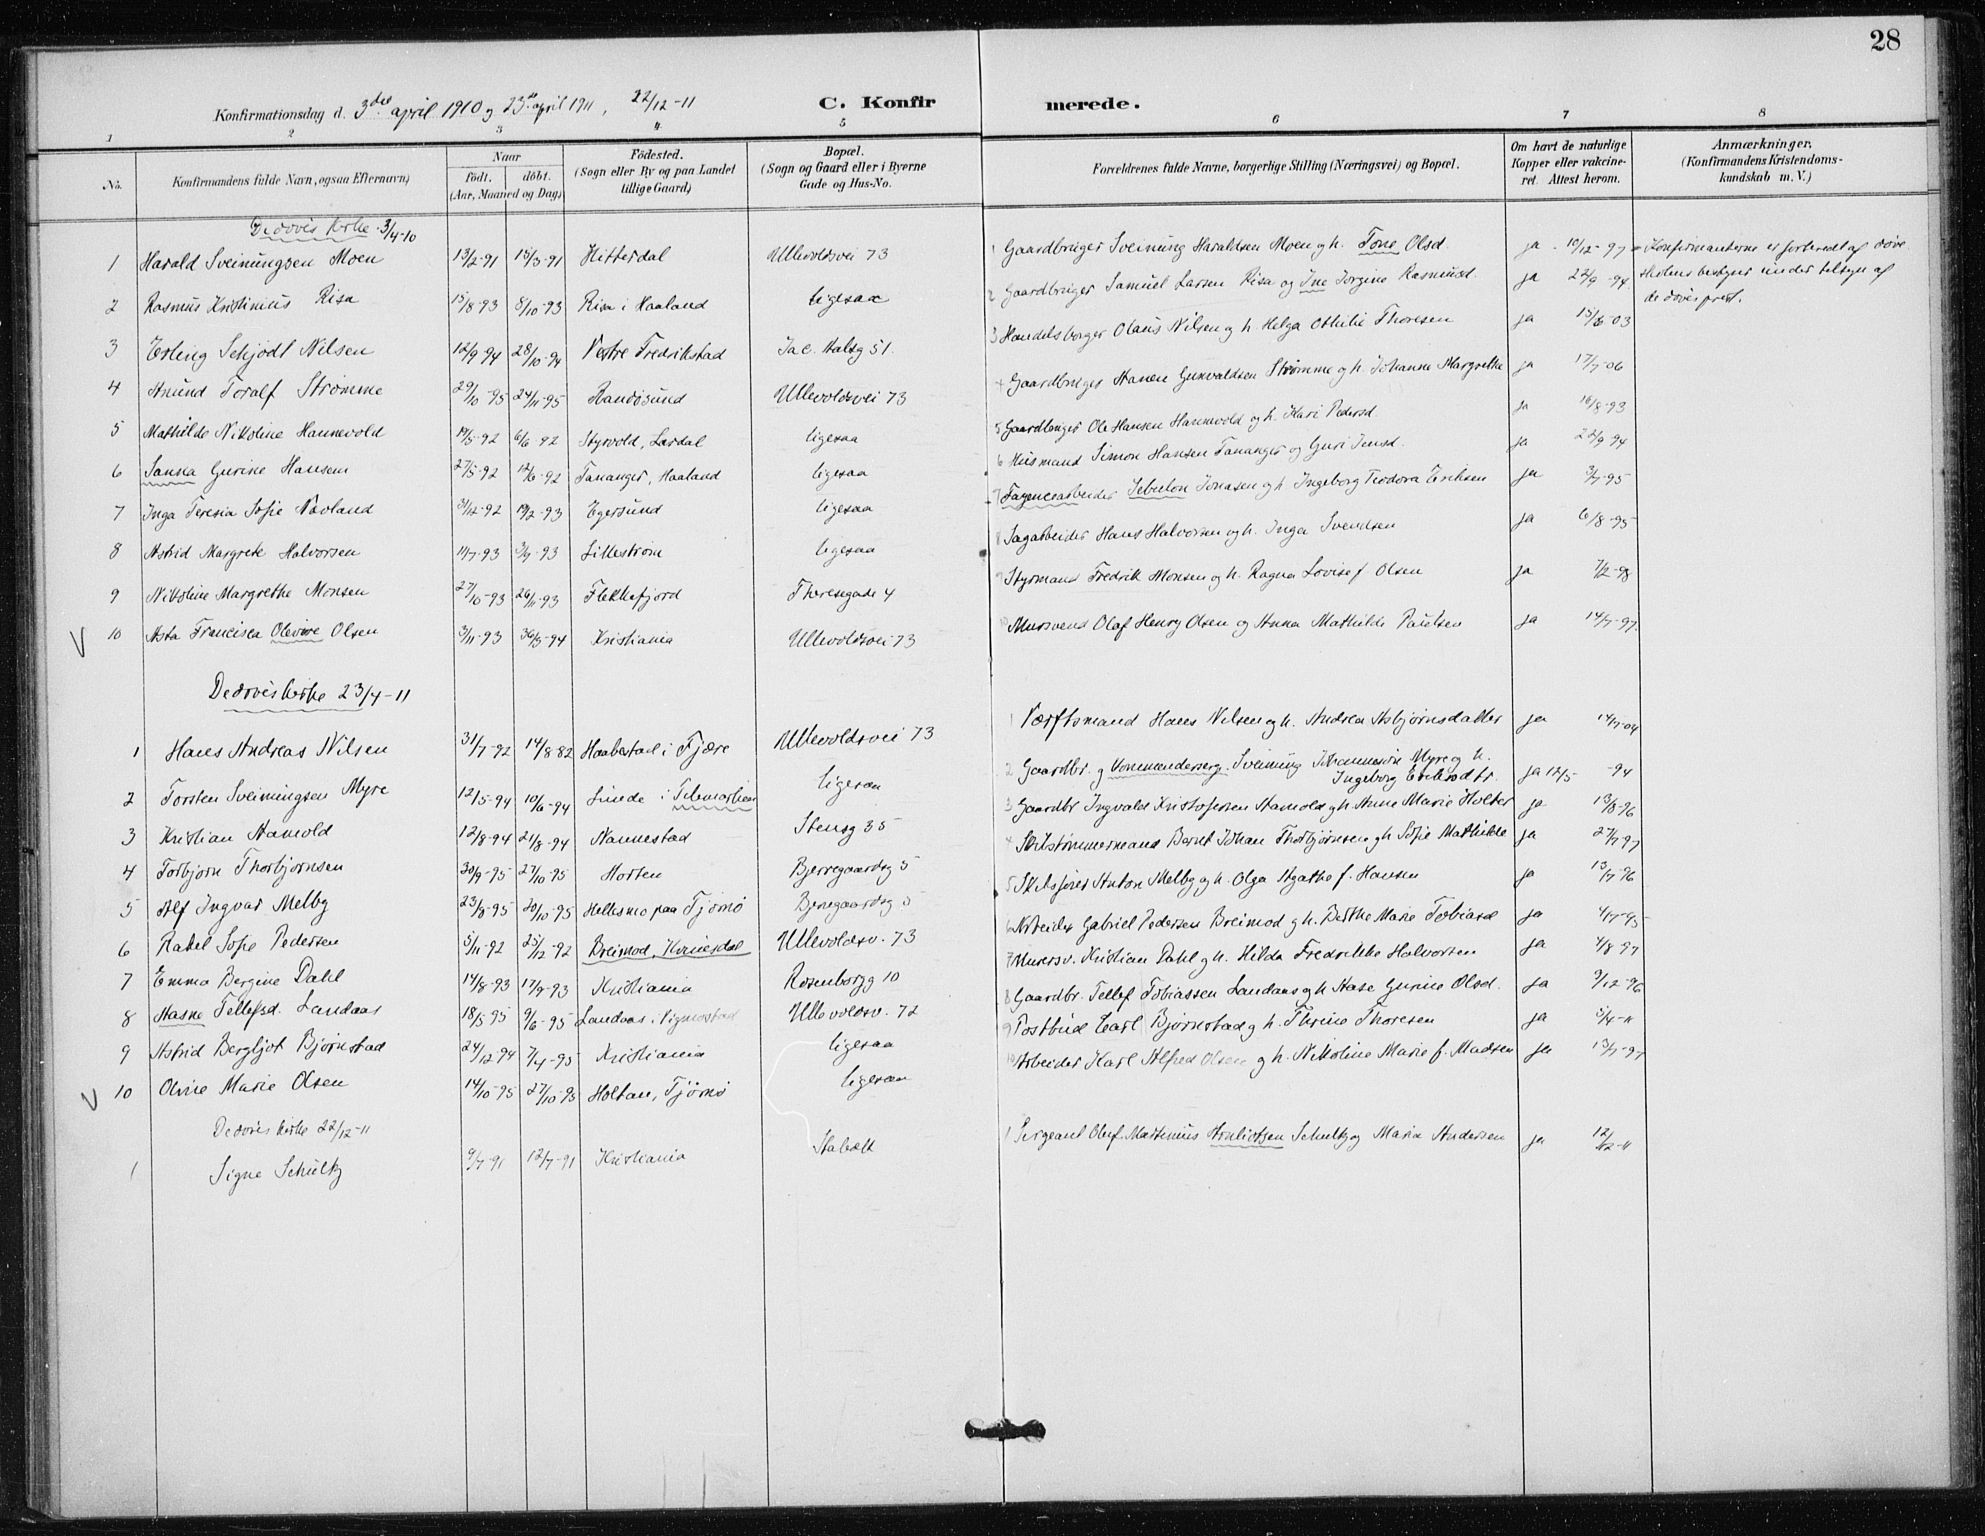 28
Konfirmationsdag d. 3die april 1910 og 23de april 1911, 22/12-11 C. Konfir merede.
1 2 3 4 5 6 7 8
No. Konfirmandens fulde Navn, ogsaa Efternavn) Naar født. døbt. (Aar, Maaned og Dag) Födested. (Sogn eller By og paa Landet tillige Gaard) Bopæl. (Sogn og Gaard eller i Byerne Gade og Hus-No. Forældrenes fulde Navne, borgerlige Stilling (Næringsvei) og Bopæl. Om havt de naturlige Kopper eller vakcineret. Attest herom. Anmærkninger. (Konfirmandens Kristendomskundskab m. V.)
Dedøves kirke 3/4-10
1 Harald Sveinungsen Moen 13/2-91 15/3-91 Hitterdal Ullevoldsvei 73 1 Gaardbruger Sveinung Haraldsen Moen og h. Tone Olsd. ja 10/12-97 Konfirmanterne er forberedt af døve
2 Rasmus Kristinius Risa 15/8-93 8/10-93 Risa i Haaland ligesaa 2 Gaardbruger Samuel Larsen Risa og Ine Jorgine Rasmusd. ja 22/9-94 skolens bestyrer under tilsyn af
de døves prest.
3 Erling Schjødt Nilsen 12/9-94 28/10-94 Vestre Fredrikstad Jac. Aalsg 51. 3 Handelsborger Olaus Nilsen og h Helga Othilie Thoresen ja 15/6-03
4 Anund Toralf Strømme 29/10-95 24/11-95 Randøsund Ullevoldsvei 73 4 Gaardbruger Hanen Gunvaldsen Strømme og h. Johanne Margrethe ja 17/7-06
5 Mathilde Nikoline Hannevold 14/5-92 6/6-92 Styrvold, Lardal ligesaa 5 Gaardbruger Ole Hansen Hannevold og h. Kari Pedersd. ja 16/8-93
6 Sanna Gurine Hansen 27/5-92 12/6-92 Tananger, Haaland ligesaa 6 Husmand Simon Hansen Tananger og Guri Jensd. ja 22/9-94
7 Inga Teresia Sofie Navland 31/12-92 19/2-93 Egersund ligesaa 7 Fayencearbeider Sebulon Jonasen og h Ingeborg Teodora Eriksen ja 3/7-95
8 Astrid Margrete Halvorsen 11/7-93 3/9-93 Lillestrøm ligesaa 8 Sagarbeider Hans Halvorsen og h. Inga Svendsen ja 6/8-95
9 Nikoline Margrethe Monsen 27/10-93 26/11-93 Flekkefjord Theresegade 4 9 Styrmand Fredrik Monsen og h. Ragna Lovise f. Olsen ja 7/12-98
10 Asta Francisca Olevine Olsen 3/11-93 30/3-94 Kristiania Ullevoldsvei 73 10 Mursvend Olaf Henry Olsen og Anna Mathilde Paulsen ja 14/7-97
Dedøves kirke 23/4-11
1 Hans Andreas Nilsen 31/7-92 14/8-82 Haabestad i Fjære Ullevoldsvei 73 1 Værftsmand Hans Nilsen og h. Andrea Asbjørnsdatter ja 14/7-04
2 Torsten Sveinungsen Myre 12/5-94 10/6-94 i Telemarken ligesaa 2 Gaardbr. og Sveinung Johannesen Myre og h. Ingeborg Eriksdtr. ja 12/5-94
3 Kristian Aamold 12/8-94 21/8-94 Nannestad Stensg 35 3 Gaardbr Ingvald Kristofersen Aamold og h Anne Marie Holter ja 13/8-96
4 Torbjørn Thorbjørnsen 30/9-95 27/10-95 Horten Bjerregaardsg 5 4 Skibstømmermand Bernt Johan Thorbjørnsen og h Sofie Mathilde ja 27/7-97
5 Alf Ingvar Melby 23/8-95 20/10-95 Hellesmo paa Tjømø Bjerregaardsg 5 5 Skibsfører Anton Melby og h. Olga Agathe f. Hansen ja 13/7-96
6 Rakel Sofie Pedersen 5/11-92 25/12-92 Breimod, Kvinesdal Ullevoldsv. 73 6 Arbeider Gabriel Pedersen Breimod og h. Berthe Marie Tobiasd ja 4/7-95
7 Emma Bergine Dahl 14/8-93 17/9-93 Kristiania Rosenborgg 10 7 Murersv. Kristian Dahl og h. Hilda Fredrikke Halvorsen ja 4/8-97
8 Aasne Tellefsd. Landaas 18/5-95 9/6-95 Landaas i Vigmostad Ullevoldsv. 72 8 Gaardbr. Tellef Tobiassen Landaas og h Aase Gurine Olsd. ja 9/12-96
9 Astrid Bergljot Bjørnstad 24/12-94 7/4-95 Kristiania ligesaa 9 Postbud Carl Bjørnstad og h. Thrine Thoresen ja 3/4-11
10 Olvine Marie Olsen 14/10-95 27/10-95 Holtan, Tjømø ligesaa 10 Arbeider Karl Alfred Olsen og h. Nikoline Marie f. Madsen ja 13/7-97
Dedøves kirke 22/12-11
1 Signe Schultz 9/7-91 12/7-91 Kristiania Stabæk 1 Sergeant Oluf Martinius Arnliotsen Schultz og Maria Andersen ja 12/12-11